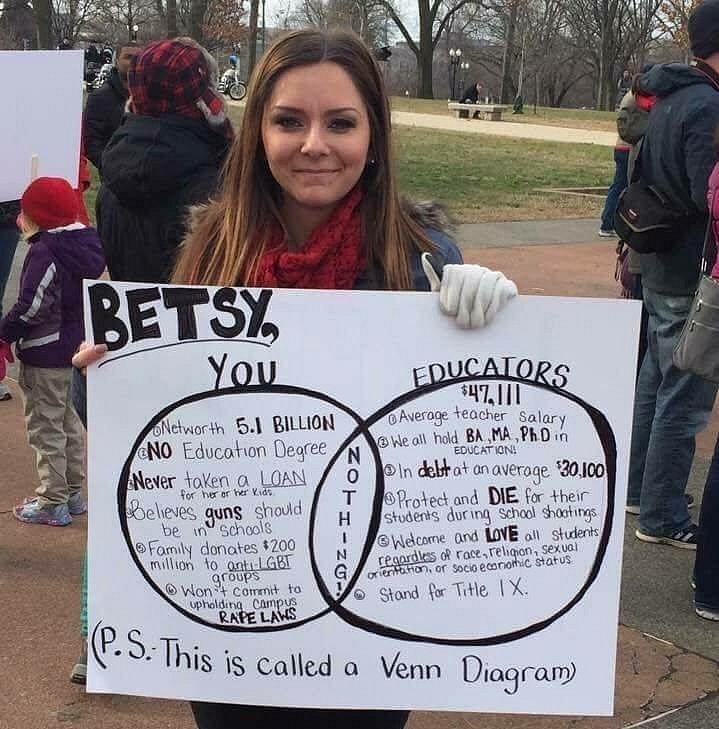 BETSY,
YOU
① Networth 5.1 BILLION
② NO Education Degree
Never taken a LOAN
for her or her kids.
Believes guns should
be in schools
⑤ Family donates $200
million to anti-LGBT
groups
⑥ Won't commit to
upholding campus
RAPE LAWS
NOTHING!
EDUCATORS
$47,111
① Average teacher salary
② We all hold BA, MA, Ph.D in
EDUCATION!
③ In debt at an average $30,100
④ Protect and DIE for their
students during school shootings
⑤ Welcome and LOVE all students
regardless of race, religion, sexual
orientation, or socio economic status.
⑥ Stand for Title IX.
(P.S.-This is called a Venn Diagram)